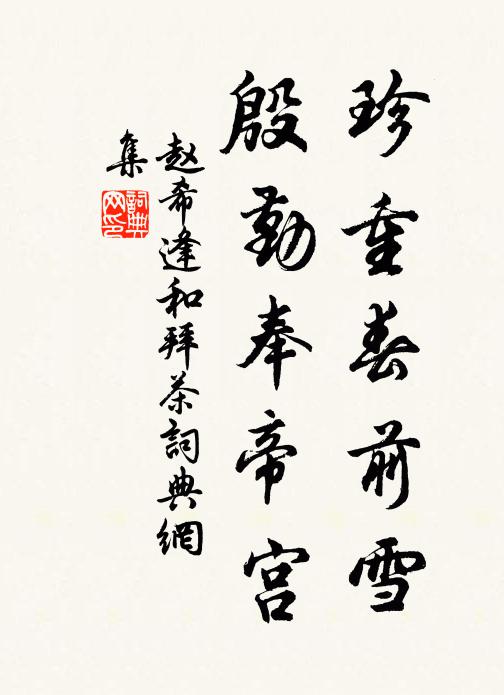 珍重春前雪
殷勤奉帝宫
赵希逢和拜茶詞典網
集
詞典
网印